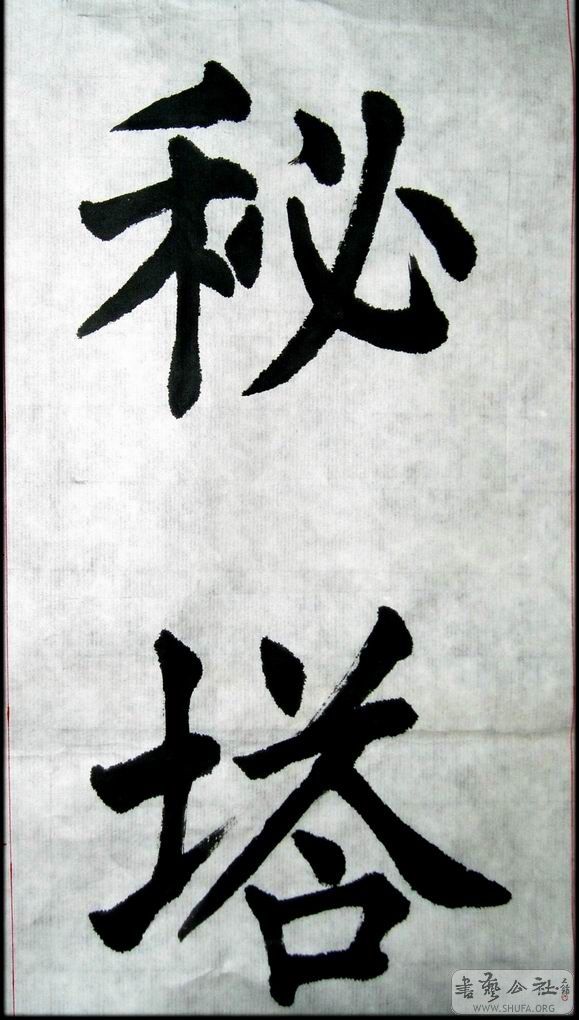 秘
塔
書藝公社
WWW.SHUFA.ORG